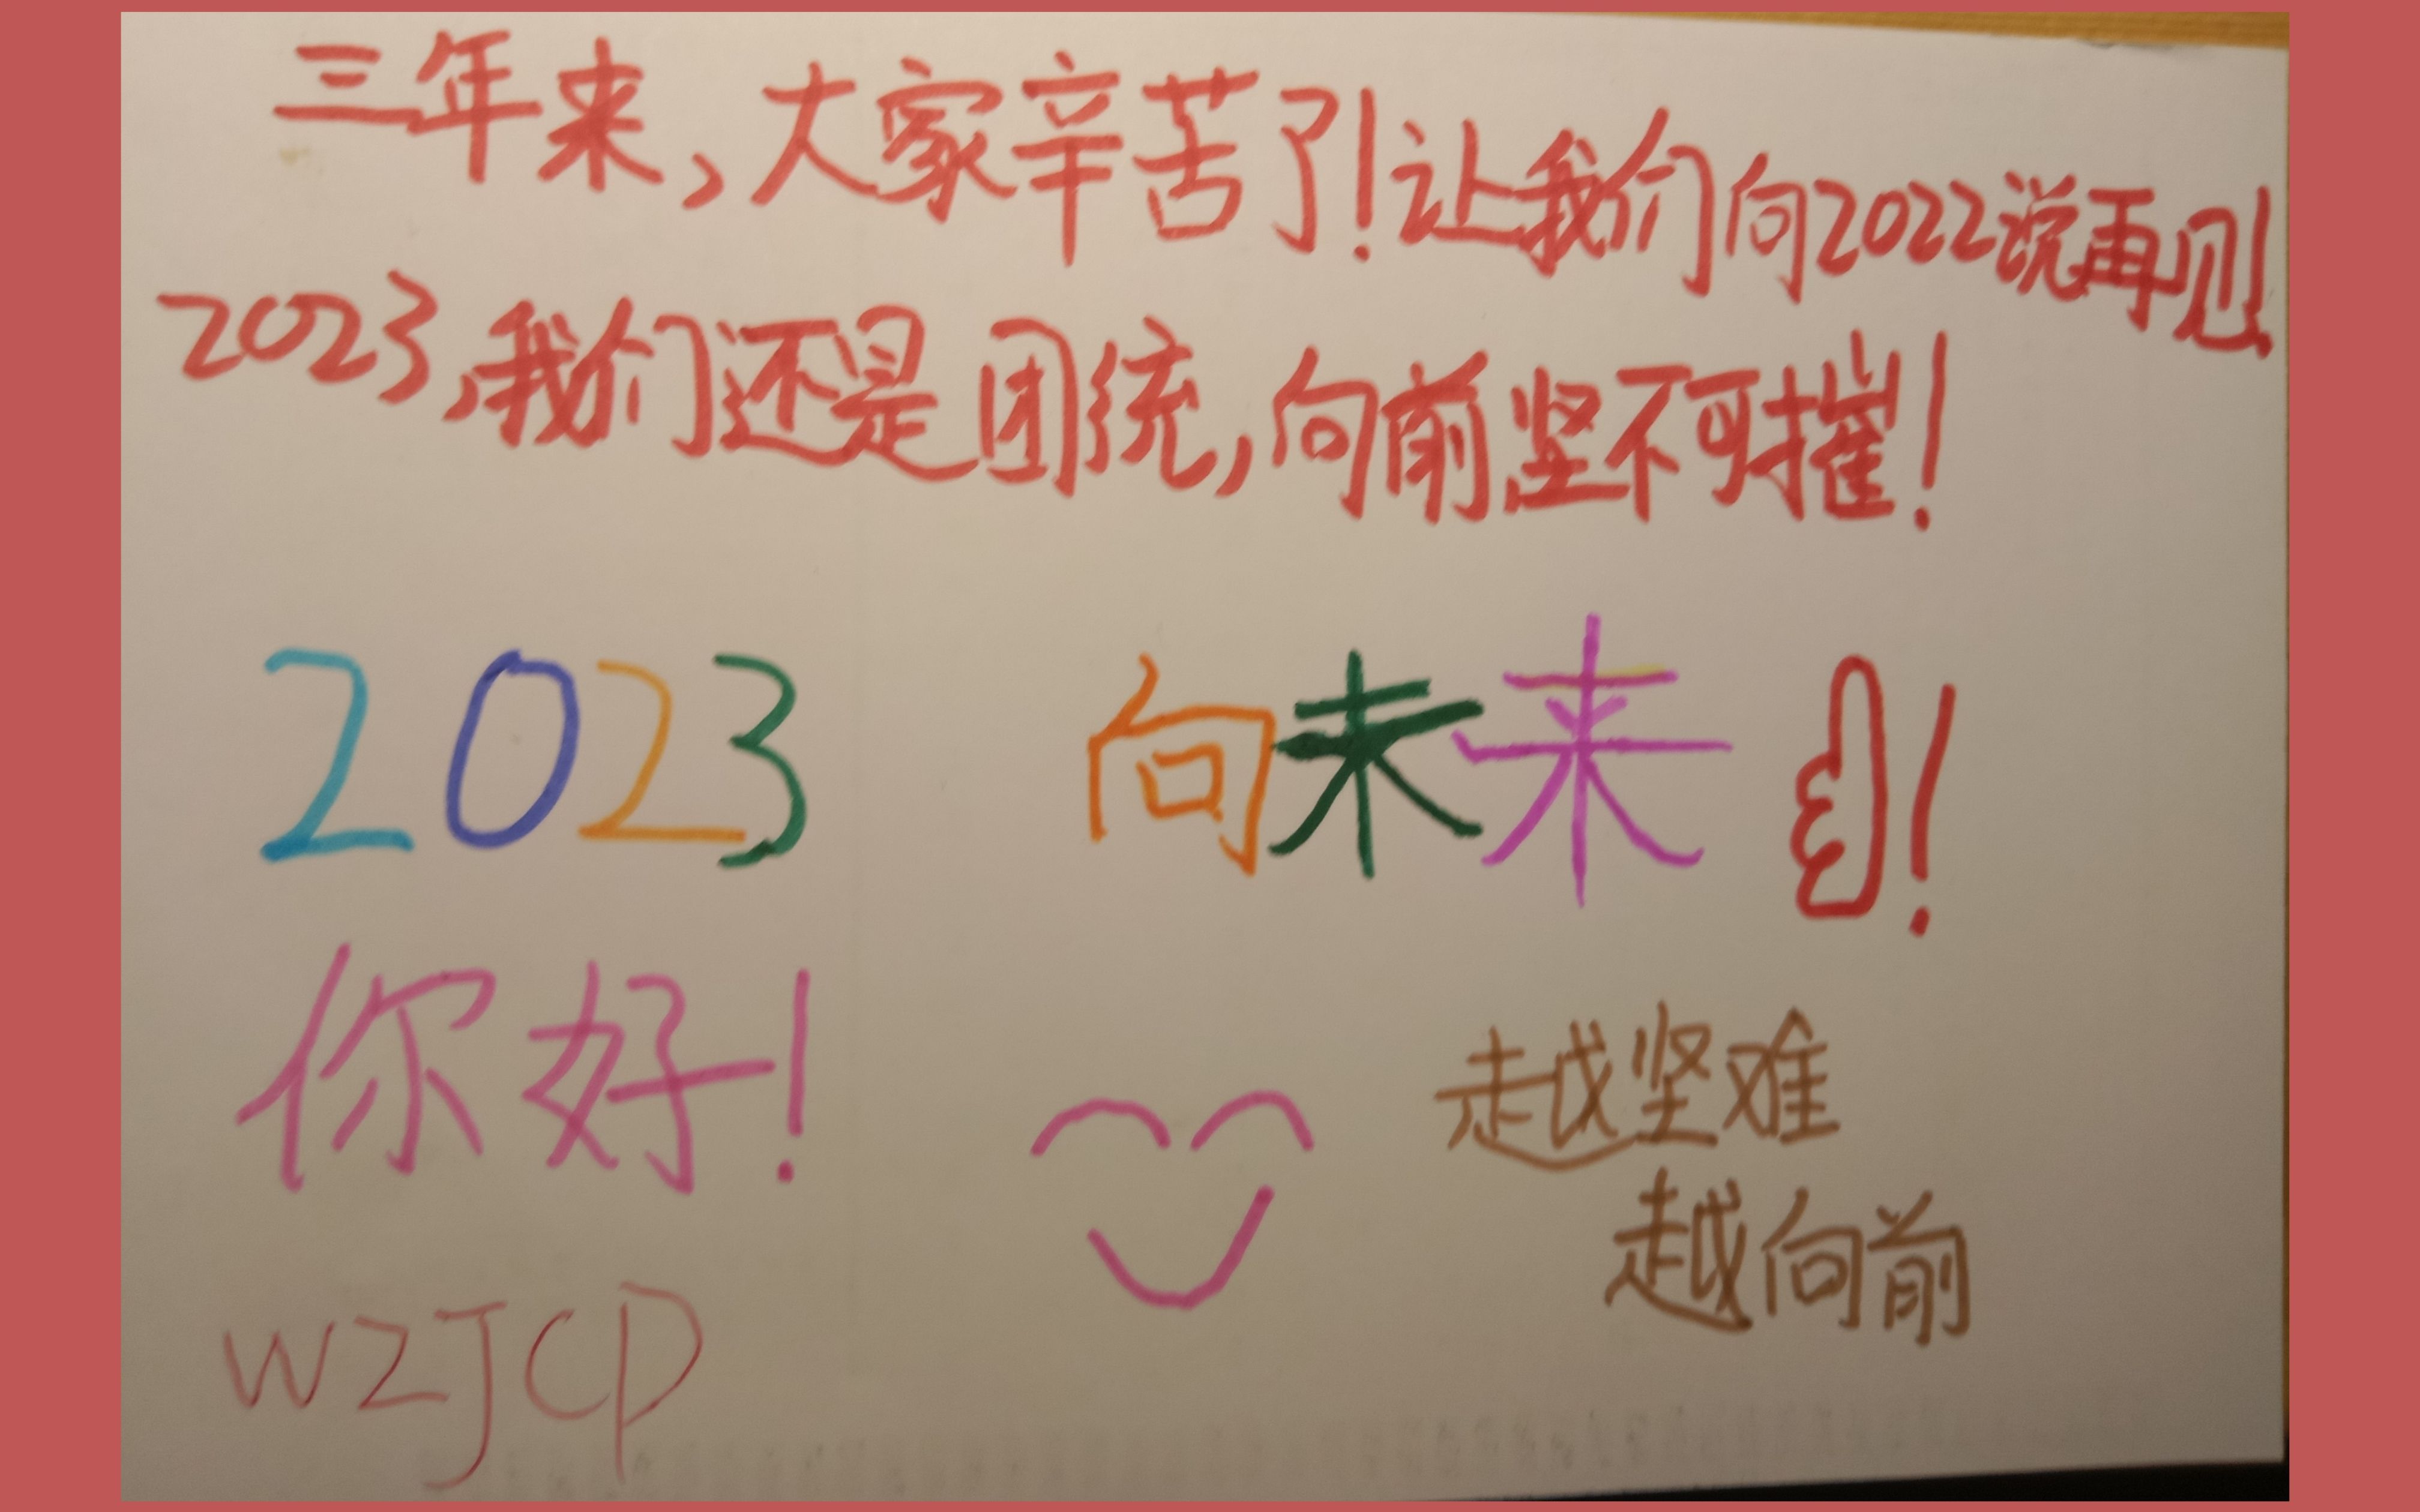 三年来，大家辛苦了！让我们向2022说再见！
2023，我们还是团统，向前坚不可摧！
2023
向未来！
你好！
越坚难
越向前
WZJCP